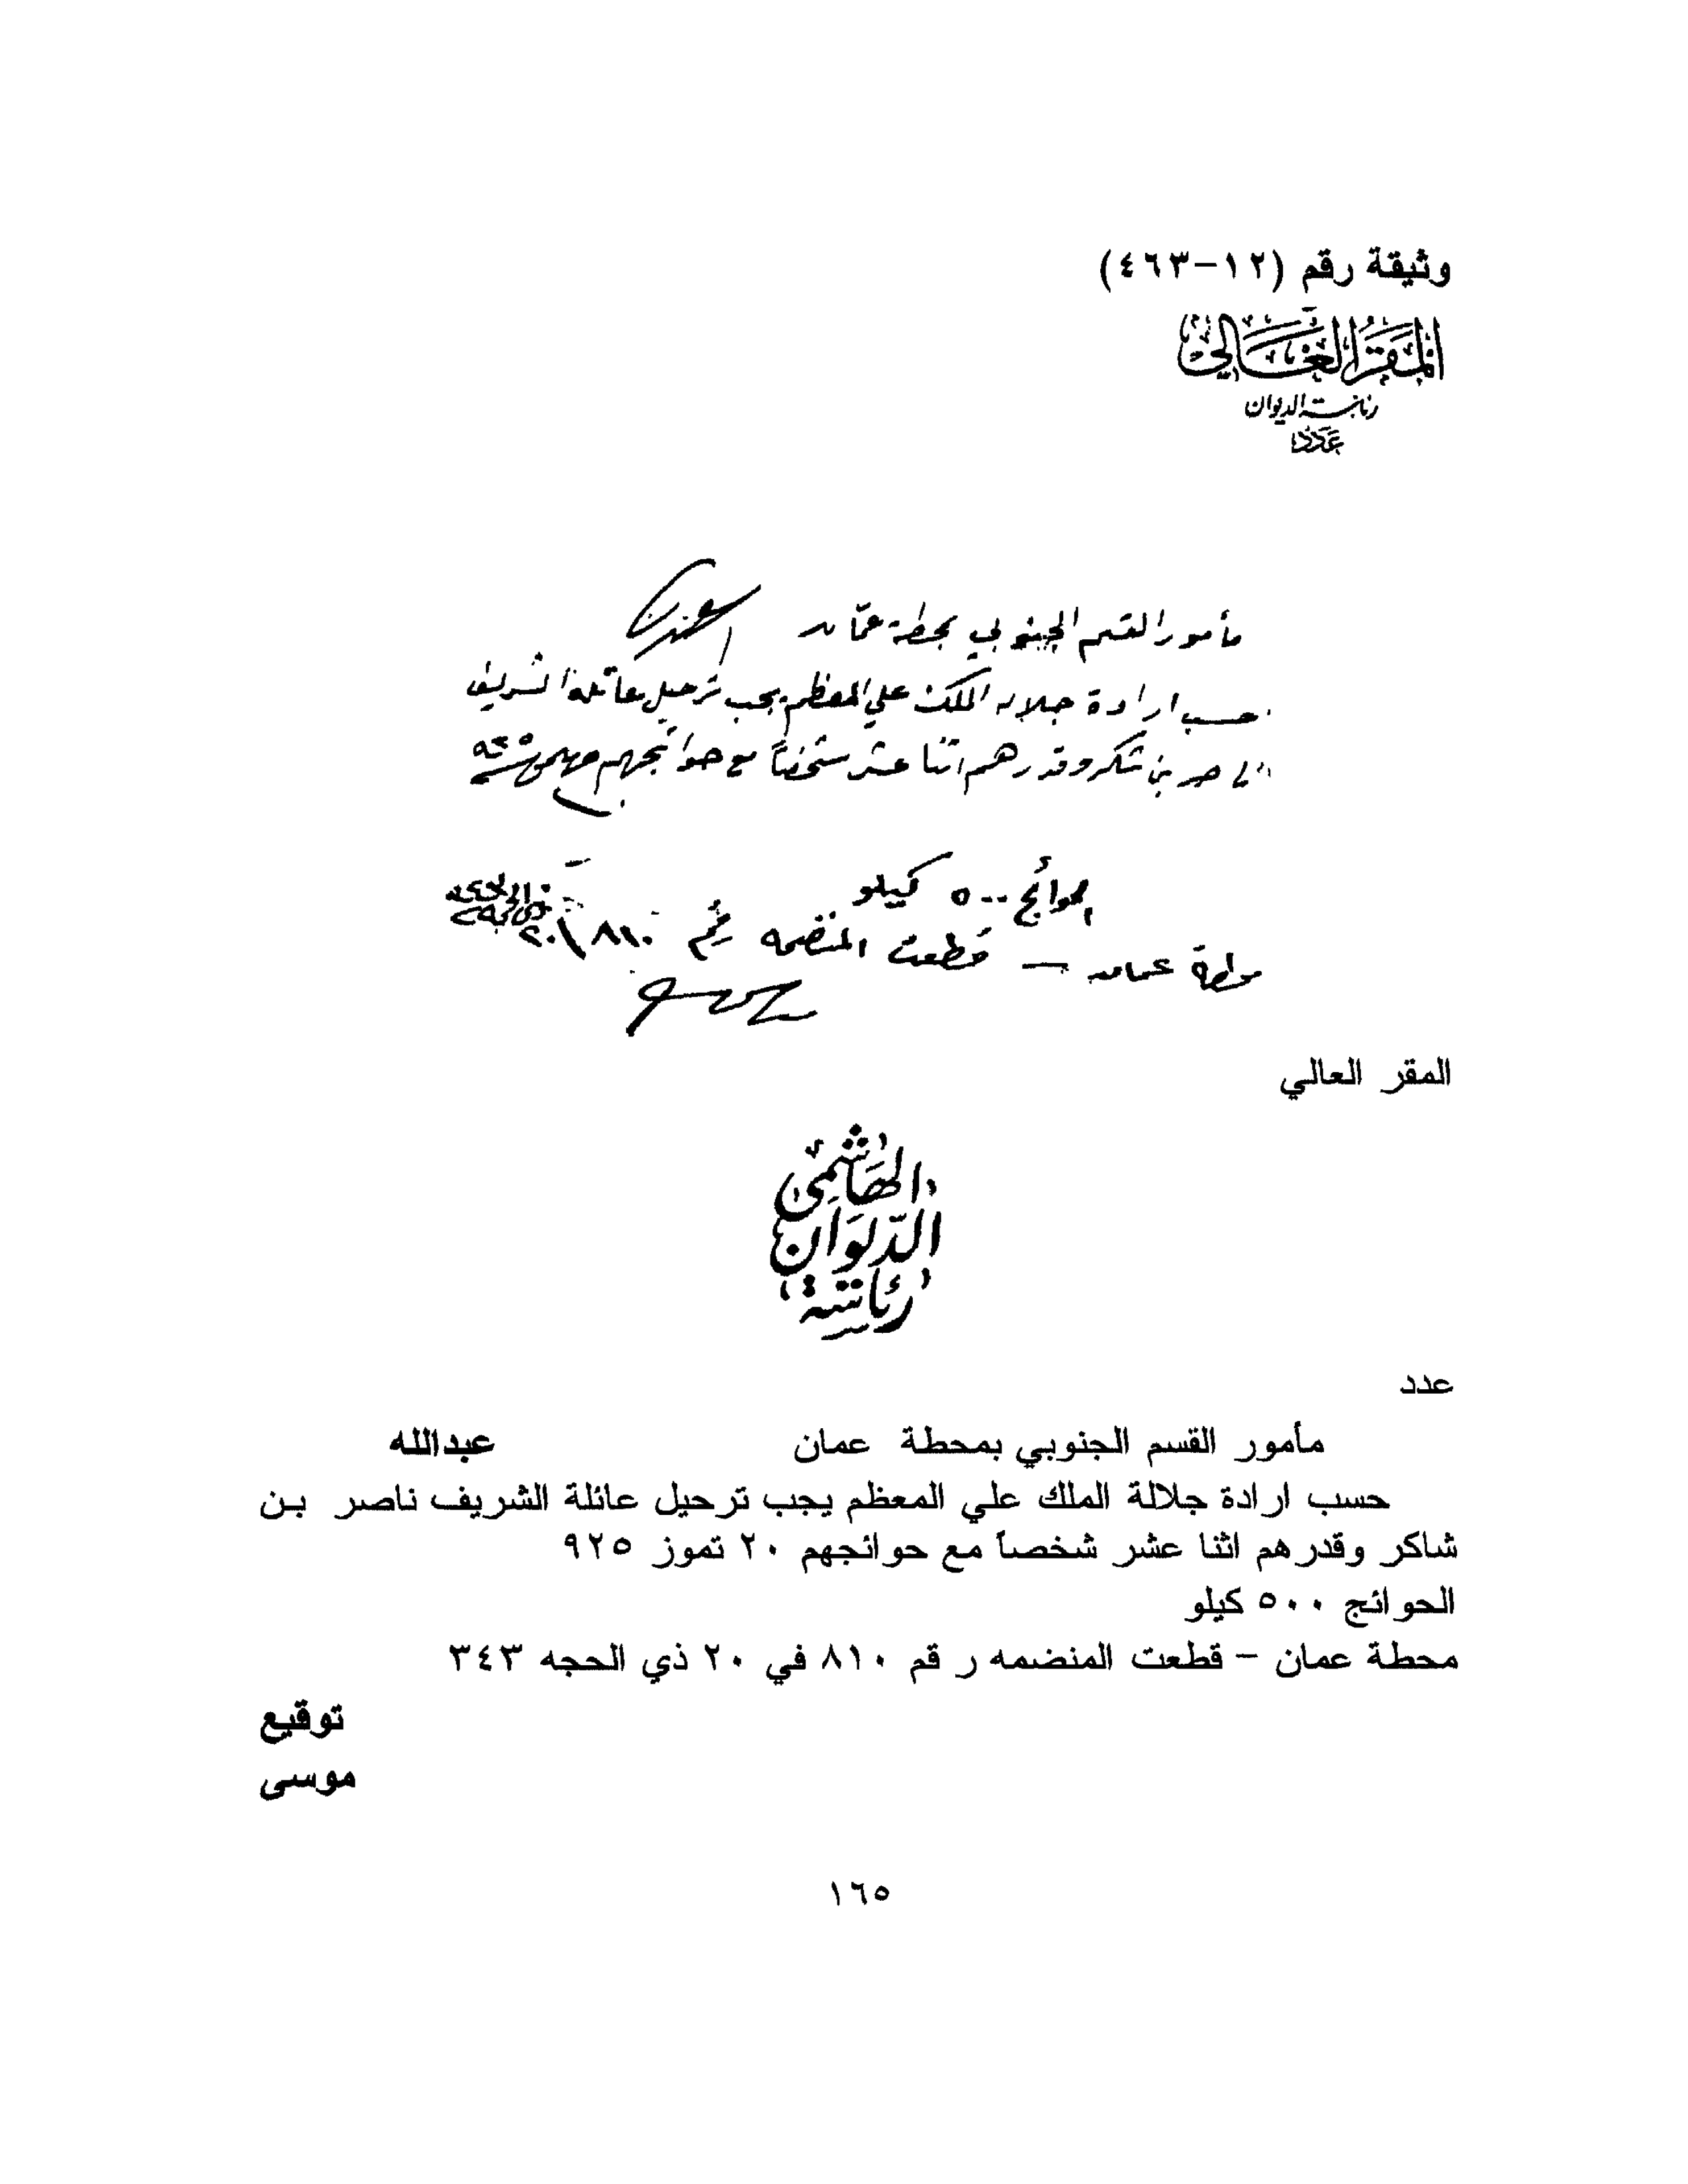 وثيقة رقم (١٢-٤٦٣)
المقر العالي
رئاسة الديوان
عدد
مأمور القسم الجنوبي بمحطة عمّان
حسب ارادة جلالة الملك علي المعظم يجب ترحيل عائلة الشريف
شكر وقدرهم اثنا عشر شخصاً مع حوائجهم
الحوائج ٥٠٠ كيلو
محطة عمان — قطعت المنضمه رقم ٨١٠ ٢٠ ذي الحجه
المقر العالي
الهاشمي
الديوان
رئاسة
عدد
مأمور القسم الجنوبي بمحطة عمان عبدالله
حسب ارادة جلالة الملك علي المعظم يجب ترحيل عائلة الشريف ناصر بن
شاكر وقدرهم اثنا عشر شخصاً مع حوائجهم ٢٠ تموز ٩٢٥
الحوائج ٥٠٠ كيلو
محطة عمان – قطعت المنضمه رقم ٨١٠ في ٢٠ ذي الحجه ٣٤٣
توقيع
موسى
١٦٥